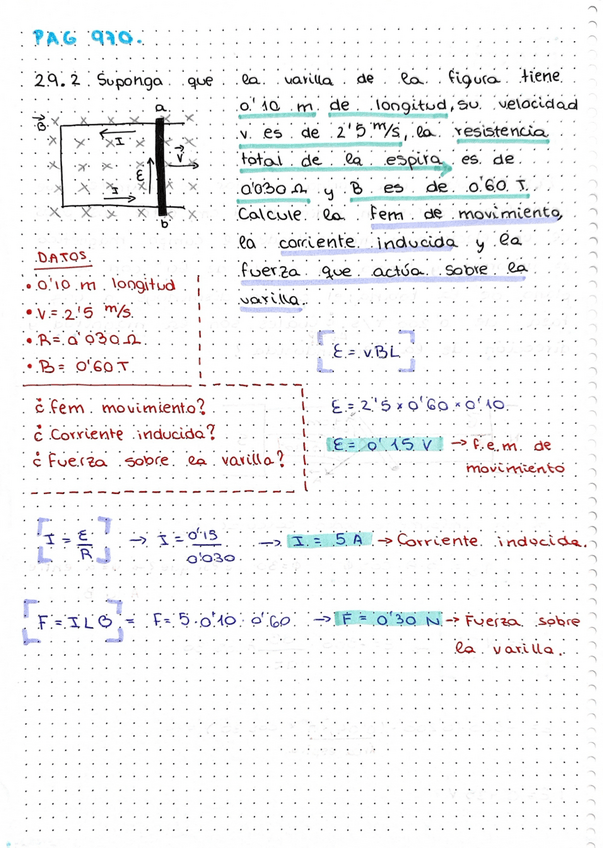 PAG 970.
29.2 Suponga que la varilla de la figura tiene
0'10 m de longitud, su velocidad
v es de 2'5 m/s, la resistencia
total de la espira es de
0'030 Ω y B es de 0'60 T.
Calcule la fem de movimiento,
la corriente inducida y la
fuerza que actúa sobre la
varilla.
B
a
I
ε
v
I
b
DATOS
• 0'10 m longitud
• V = 2'5 m/s.
• R = 0'030 Ω
• B = 0'60 T
¿ fem movimiento?
¿ Corriente inducida?
¿ Fuerza sobre la varilla?
ε = vBL
ε = 2'5 × 0'60 × 0'10
ε = 0'15 V → f.e.m. de
movimiento
I = ε/R → I = 0'15/0'030 → I = 5 A → Corriente inducida.
F = I L B = F = 5 · 0'10 · 0'60 → F = 0'30 N → Fuerza sobre
la varilla.